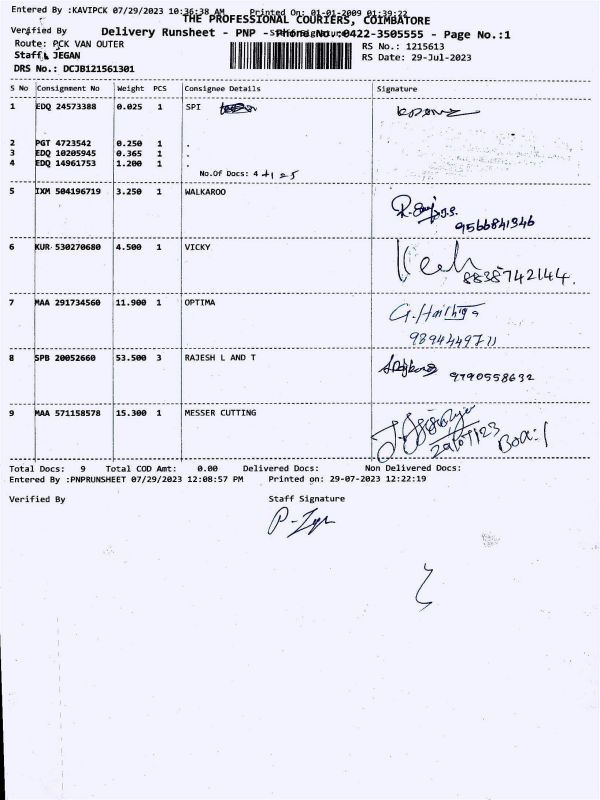 Entered By :KAVIPCK 07/29/2023 10:36:38 AM Printed On: 01-01-2009 01:39:22
THE PROFESSIONAL COURIERS, COIMBATORE
Verified By Delivery Runsheet - PNP - Phone No.:0422-3505555 - Page No.:1
Route: PCK VAN OUTER RS No.: 1215613
Staff: JEGAN RS Date: 29-Jul-2023
DRS No.: DCJB121561301
S No Consignment No Weight PCS Consignee Details Signature
1 EDQ 24573388 0.025 1 SPI
2 PGT 4723542 0.250 1 .
3 EDQ 10205945 0.365 1 .
4 EDQ 14961753 1.200 1 .
No.Of Docs: 4 +1 = 5
5 IXM 504196719 3.250 1 WALKAROO
9566841346
6 KUR 530270680 4.500 1 VICKY
8838742144.
7 MAA 291734560 11.900 1 OPTIMA
9894449711
8 SPB 20052660 53.500 3 RAJESH L AND T
9790558632
9 MAA 571158578 15.300 1 MESSER CUTTING
29/07/23 Box:1
Total Docs: 9 Total COD Amt: 0.00 Delivered Docs: Non Delivered Docs:
Entered By :PNPRUNSHEET 07/29/2023 12:08:57 PM Printed on: 29-07-2023 12:22:19
Verified By Staff Signature